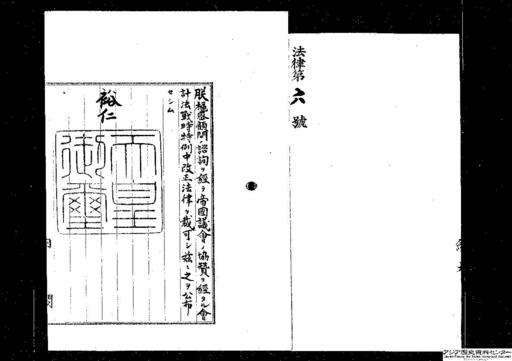 法律第六號
朕樞密顧問ノ諮詢ヲ經テ帝國議會ノ協贊ヲ經タル會
計法戰時特例中改正法律ヲ裁可シ玆ニ之ヲ公布
セシム
裕仁
天皇
御璽
アジア歴史資料センター